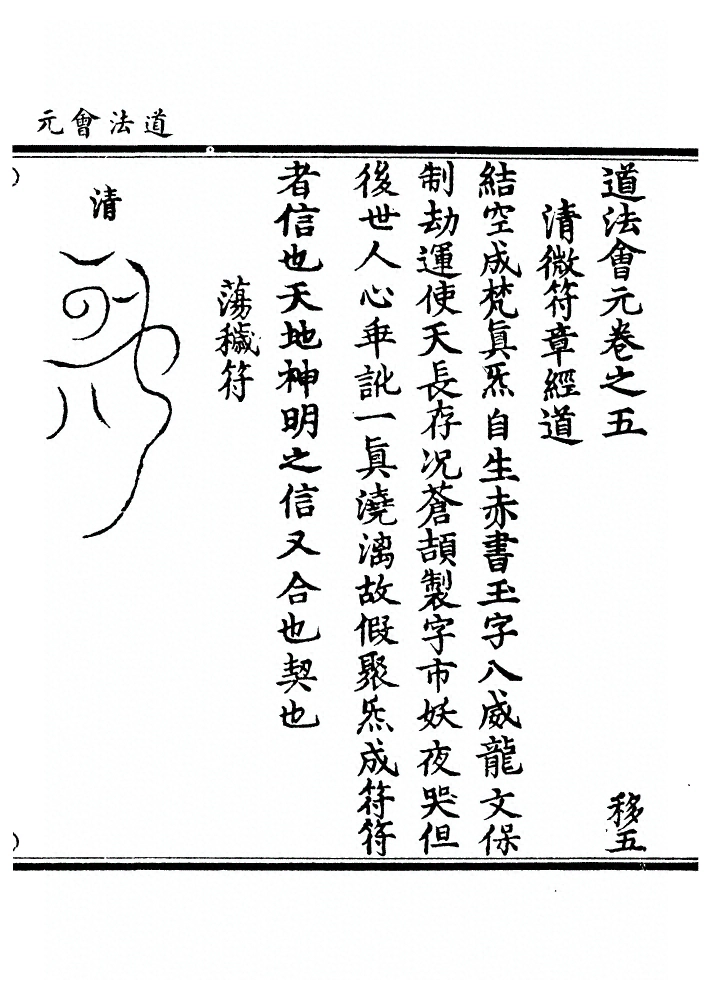 道法會元
道法會元卷之五 移五
清微符章經道
結空成梵眞炁自生赤書玉字八威龍文保
制劫運使天長存况蒼頡製字市妖夜哭但
後世人心乖訛一眞澆漓故假聚炁成符符
者信也天地神明之信又合也契也
蕩穢符
清